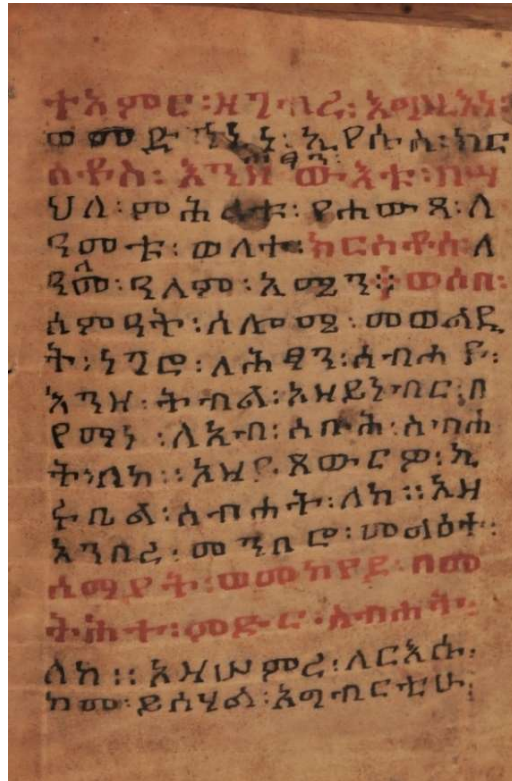 ተአምር፡ ዘገብረ፡ እግዚእነ፡
ወመድኀኒነ፡ ኢየሱስ፡ ክር
ሕፃን፡
ስቶስ፡ እንዘ ውእቱ፡ በሣ
ህለ፡ ምሕረቱ፡ የሐውጻ፡ ለ
ዓመቱ፡ ወለተ፡ ክርስቶስ፡ ለ
ዓለመ፡ ዓለም፡ አሜን፡፡ ተወሰበ፡
ሰምዓት፡ ሰሎሜ፡ መወልዲ
ት፡ ነገሮ፡ ለሕፃን፡ ሰብሐ ዮ፡
እንዘ፡ ትብል፡ አዘይነብር፡ በ
የማነ፡ ለአብ፡ ሰቡሕ፡ ስብሐ
ት፡ ለከ፡፡ አዘይጸውርዎ፡ ኪ
ሩቤል፡ ሰብሐት፡ ለከ፡፡ አዘ
አንበረ፡ መንበሮ፡ መልዕተ፡
ሰማያት፡ ወመከየደ፡ በመ
ትሕተ፡ ምድር፡ ስብሐት፡
ለከ፡፡ አዘሠምረ፡ ለርእሱ፡
ከመ፡ ይሰሃል፡ አግብርቲሁ፡